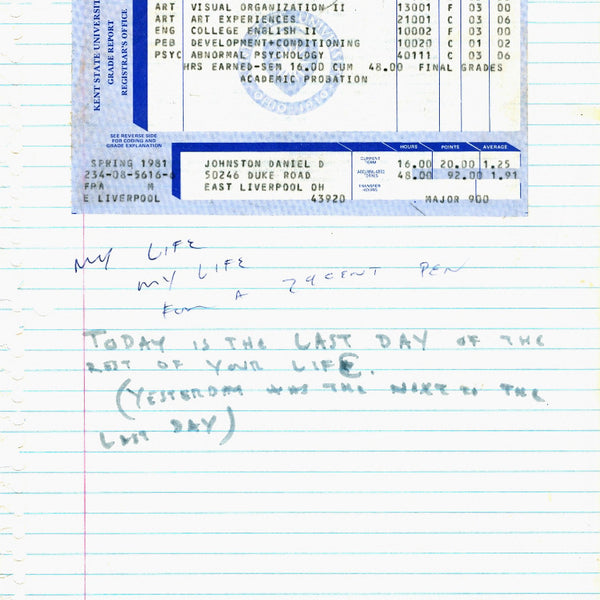 KENT STATE UNIVERSITY
GRADE REPORT
REGISTRAR'S OFFICE
ART VISUAL ORGANIZATION II 13001 F 03 00
ART ART EXPERIENCES 21001 C 03 06
ENG COLLEGE ENGLISH II 10002 F 03 00
PEB DEVELOPMENT+CONDITIONING 10020 C 01 02
PSYC ABNORMAL PSYCHOLOGY 40111 C 03 06
HRS EARNED-SEM 16.00 CUM 48.00 FINAL GRADES
ACADEMIC PROBATION
SEE REVERSE SIDE
FOR CODING AND
GRADE EXPLANATION
HOURS POINTS AVERAGE
SPRING 1981 JOHNSTON DANIEL D CURRENT TERM 16.00 20.00 1.25
234-08-5616- 50246 DUKE ROAD 48.00 92.00 1.91
FRA M EAST LIVERPOOL OH TRANSFER HOURS
E LIVERPOOL 43920 MAJOR 900
MY LIFE
MY LIFE
FOR A 29 CENT PEN
TODAY IS THE LAST DAY OF THE
REST OF YOUR LIFE.
(YESTERDAY WAS THE NEXT TO THE
LAST DAY)